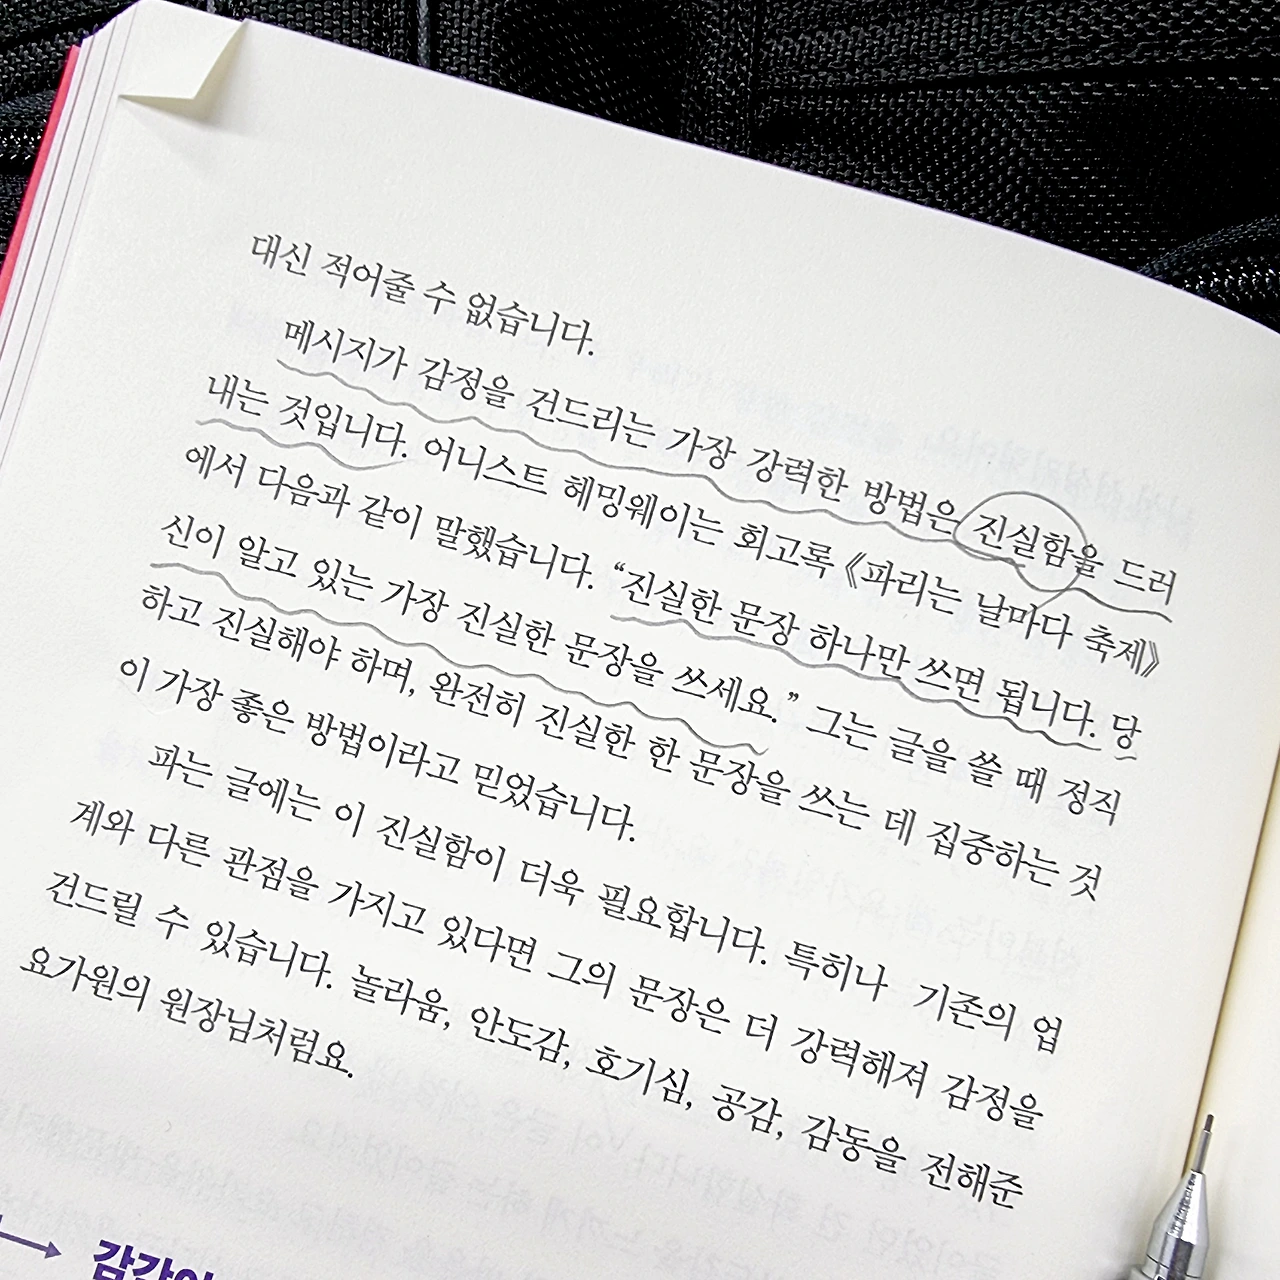 대신 적어줄 수 없습니다.
메시지가 감정을 건드리는 가장 강력한 방법은 진실함을 드러
내는 것입니다. 어니스트 헤밍웨이는 회고록 《파리는 날마다 축제》
에서 다음과 같이 말했습니다. “진실한 문장 하나만 쓰면 됩니다. 당
신이 알고 있는 가장 진실한 문장을 쓰세요.” 그는 글을 쓸 때 정직
하고 진실해야 하며, 완전히 진실한 한 문장을 쓰는 데 집중하는 것
이 가장 좋은 방법이라고 믿었습니다.
파는 글에는 이 진실함이 더욱 필요합니다. 특히나 기존의 업
계와 다른 관점을 가지고 있다면 그의 문장은 더 강력해져 감정을
건드릴 수 있습니다. 놀라움, 안도감, 호기심, 공감, 감동을 전해준
요가원의 원장님처럼요.